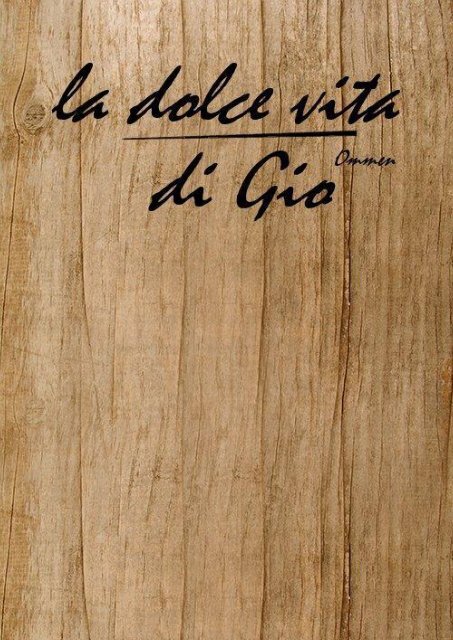 la dolce vita
Ommen
di Gio